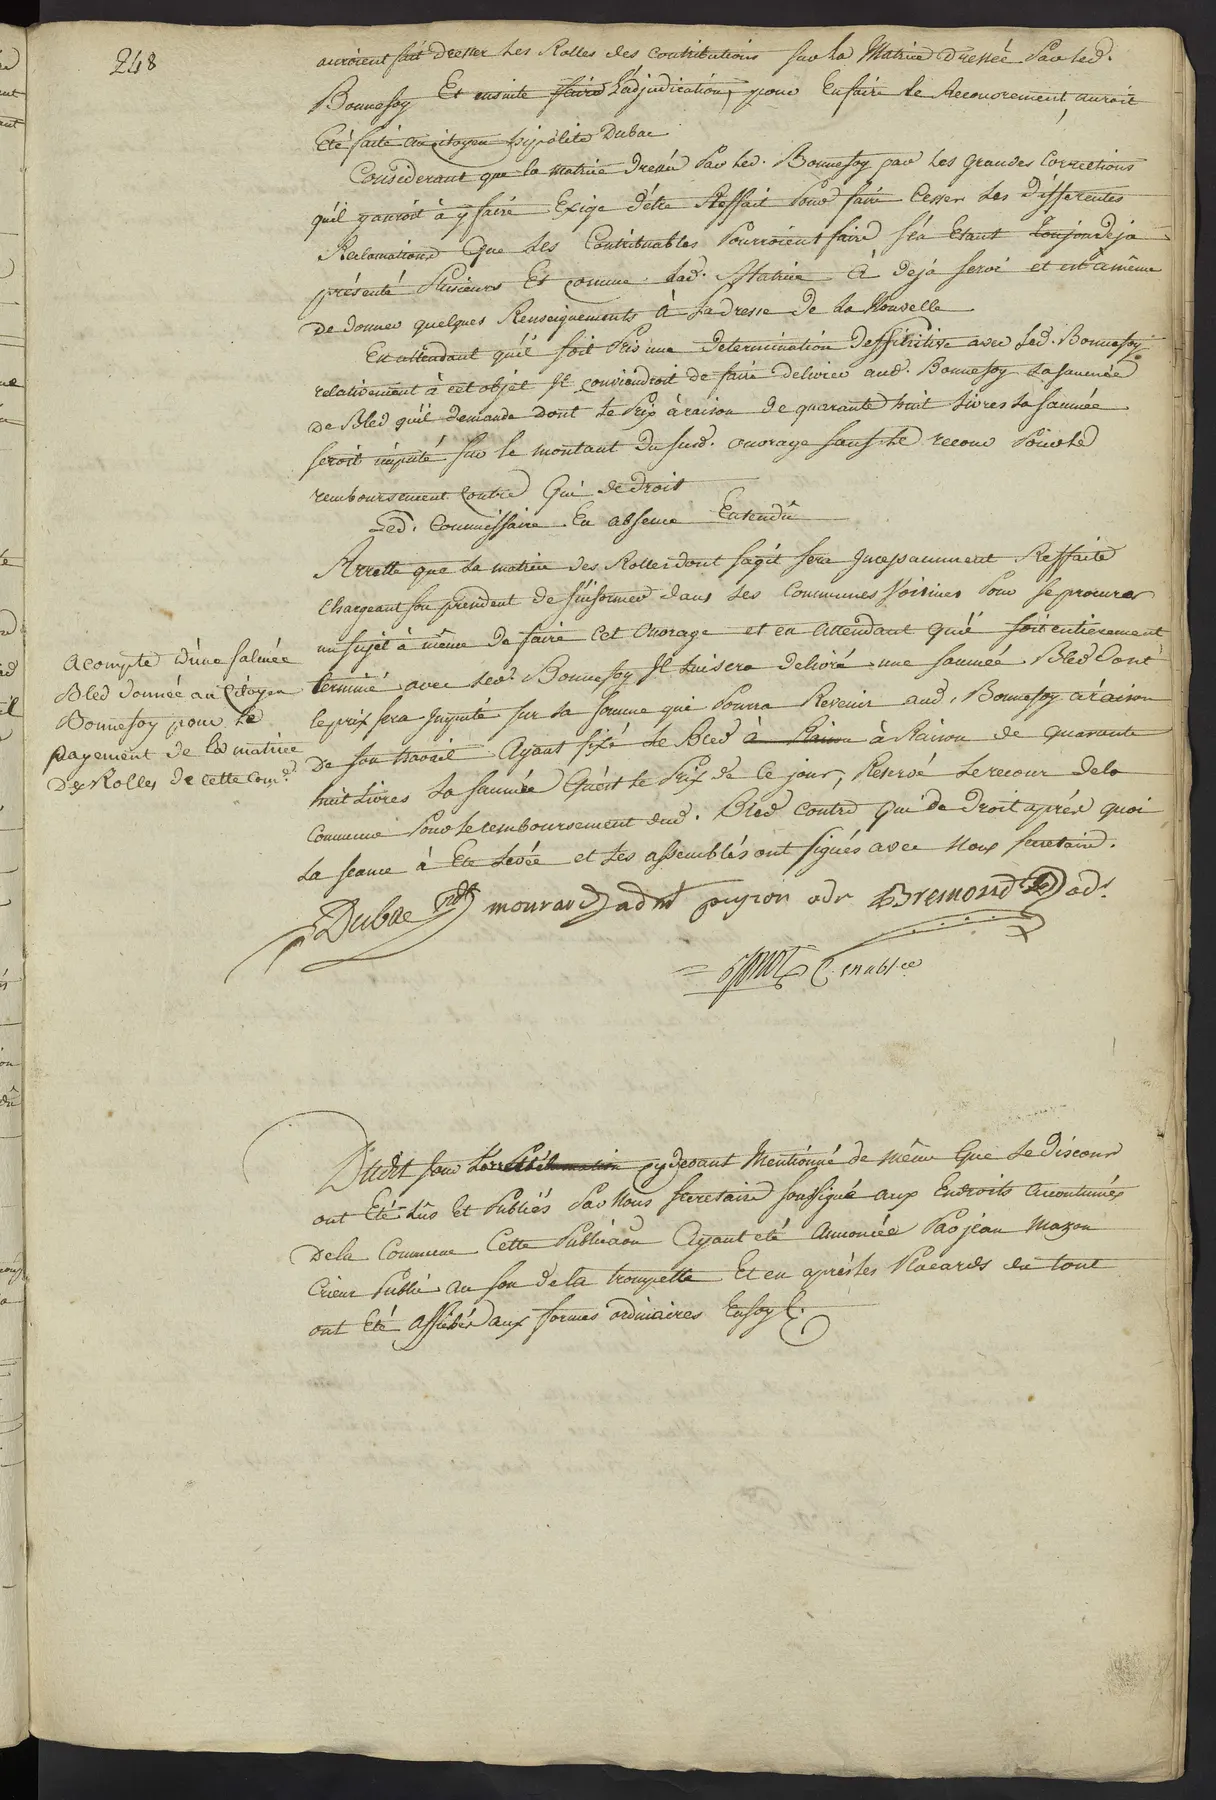 248
auroient fait dresser Les Rolles des contributions sur la Matrice Dressée Par led.
Bonnefoy Et ensuite faire L'adjudication, pour En faire le Recouvrement, auroit
Eté faite au citoyen hipolite Dubac
Considerant que la matrice Dressée Par led. Bonnefoy par les Grandes Corrections
qu'il y auroit à y faire Exige d'être Reffait Pour faire Cesser Les Differentes
Reclamations Que Les Contribuables Pourroient faire s'en Etant Toujour deja
présenté Plusieurs Et comme lad. Matrice à deja servi et est à même
De donner quelques Renseignements à La dresse de La Nouvelle
En attendant qu'il soit Pris une Determination Deffinitive avec Led. Bonnefoy
relativement à cet objet Il conviendroit de faire delivrer aud. Bonnefoy La saumée
De Bled qu'il demande Dont le Prix à raison de quarante huit Livres La saumée
seroit imputé sur le montant du sud. ouvrage sauf le recour Pour le
remboursement Contre Qui de droit
Led. Commissaire En absence Entendû
Arrette que La matrice des Rolles dont s'agit sera Incessamment Reffaite
Chargeant son president de s'informer dans Les Communes Voisines Pour se procurer
un sujet à même de faire Cet Ouvrage et en Attendant qu'il soit entierement
terminé avec led. Bonnefoy Il Lui sera delivré une saumée Bled Dont
le prix sera Imputé sur La somme qui Pourra Revenir aud. Bonnefoy à raison
De son travail Ayant fixé Le Bled à Raison à Raison de quarante
huit Livres La saumée Qu'est le Prix de Ce jour, Reservé Le recour de la
Commune Pour le remboursement dud. Bled Contre Qui de Droit après quoi
La seance à Eté Levée et Les assemblés ont signés avec Nous secretaire.
Acompte d'une salmée
Bled donnée au Citoyen
Bonnefoy pour le
payement de la matrice
Des Rolles de cette Com.e
Dubac pdt mourard adnt peyron adr Bremond ad.
Dudit Jour L'arretté cy devant Mentionné de même Que Le discour
ont Eté Lûs Et Publiés Par Nous secretaire soussigné aux Endroits Accoutumés
De la Commune Cette Publication Ayant eté Annoncée Par jean Mazon
Crieur Public au son de la trompette Et en après Les Placards en tout
ont Eté Affichés aux formes ordinaires En foy